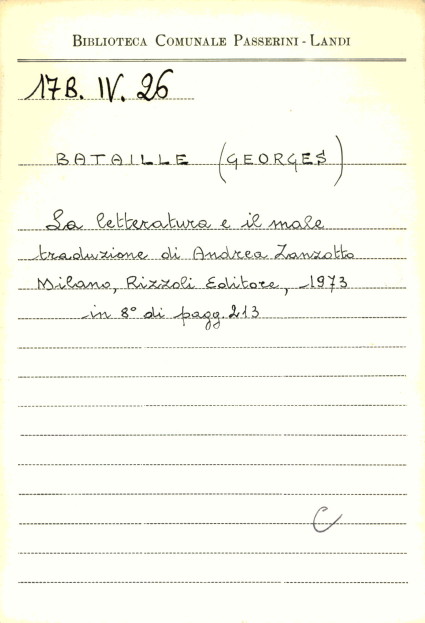 BIBLIOTECA COMUNALE PASSERINI - LANDI
17B. IV. 26
BATAILLE (GEORGES)
La letteratura e il male
traduzione di Andrea Zanzotto
Milano, Rizzoli Editore, 1973
in 8° di pagg. 213
C